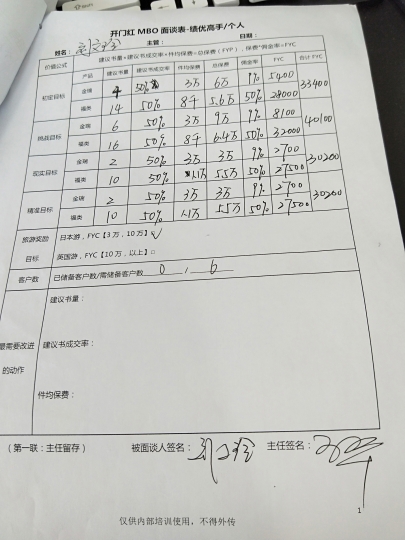 开门红 MBO 面谈表-绩优高手/个人
姓名： 主管： 日期：
价值公式 建议书量×建议书成交率×件均保费=总保费（FYP），保费*佣金率=FYC
产品 建议书量 建议书成交率 件均保费 总保费 佣金率 FYC 合计 FYC
初定目标 金瑞 4 50% 3万 6万 9% 5400 33400
福类 14 50% 8千 5.6万 50% 28000
挑战目标 金瑞 6 50% 3万 9万 9% 8100 40100
福类 16 50% 8千 6.4万 50% 32000
现实目标 金瑞 2 50% 3万 3万 9% 2700 30200
福类 10 50% 1.1万 5.5万 50% 27500
精准目标 金瑞 2 50% 3万 3万 9% 2700 30200
福类 10 50% 1.1万 5.5万 50% 27500
旅游奖励目标 日本游，FYC【3 万，10 万】√
英国游，FYC【10 万，以上】□
客户数 已储备客户数/需储备客户数 0 / 6
建议书量：
最需要改进的动作 建议书成交率：
件均保费：
（第一联：主任留存） 被面谈人签名： 主任签名：
仅供内部培训使用，不得外传
1